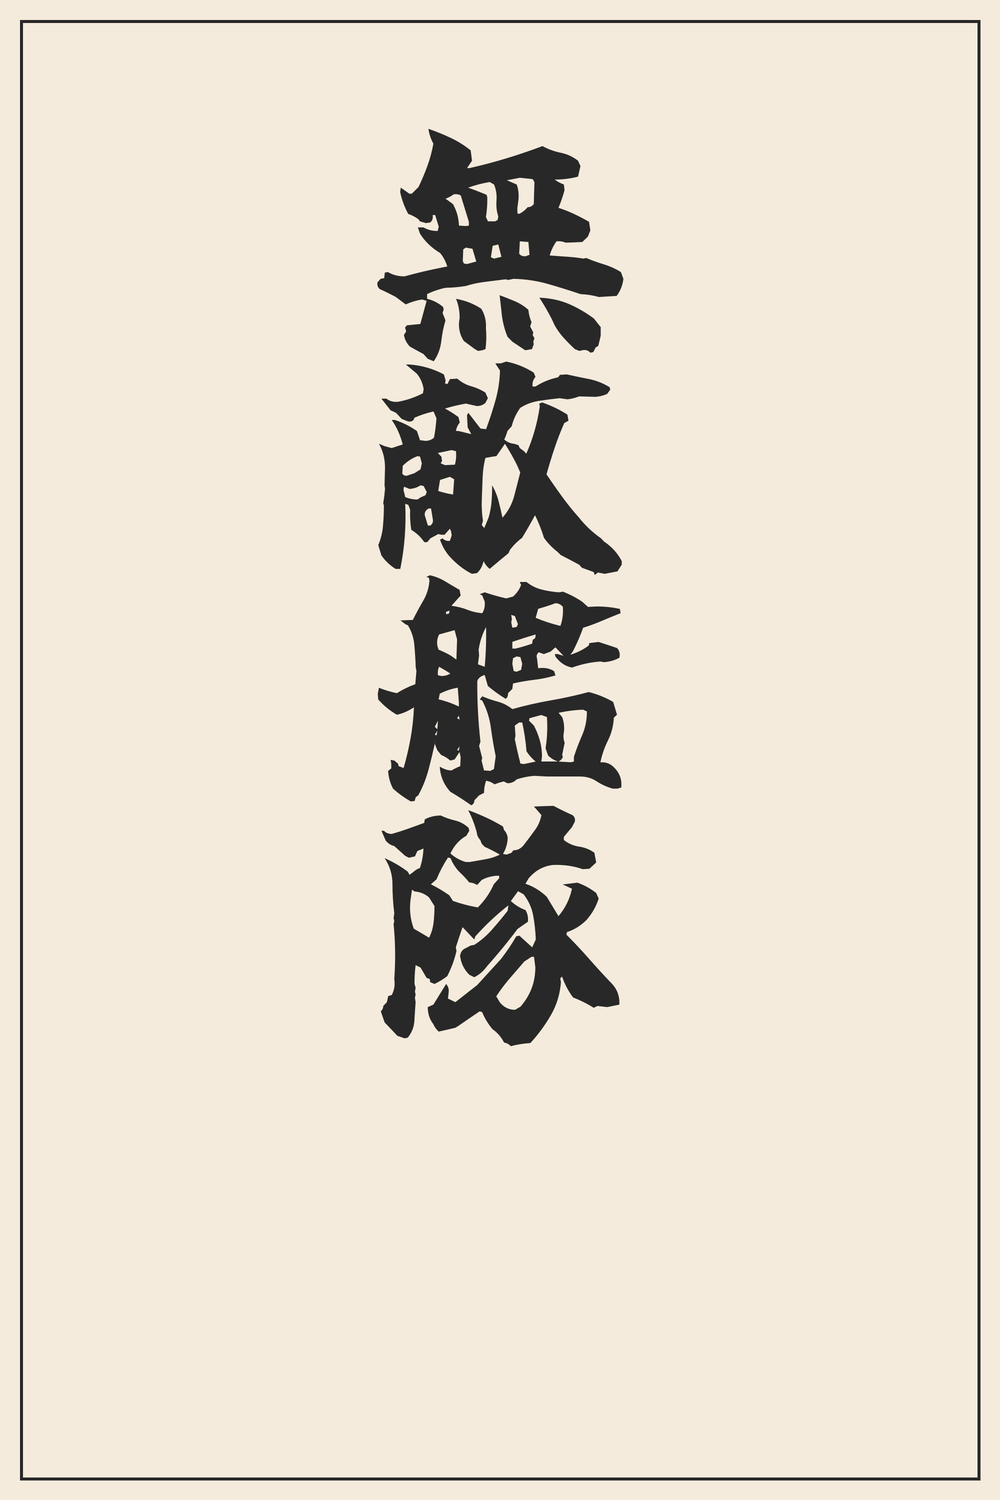 無敵艦隊